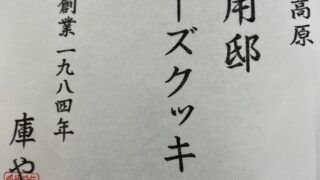 高原
用邸
ーズクッキ
創業一九八四年
庫や